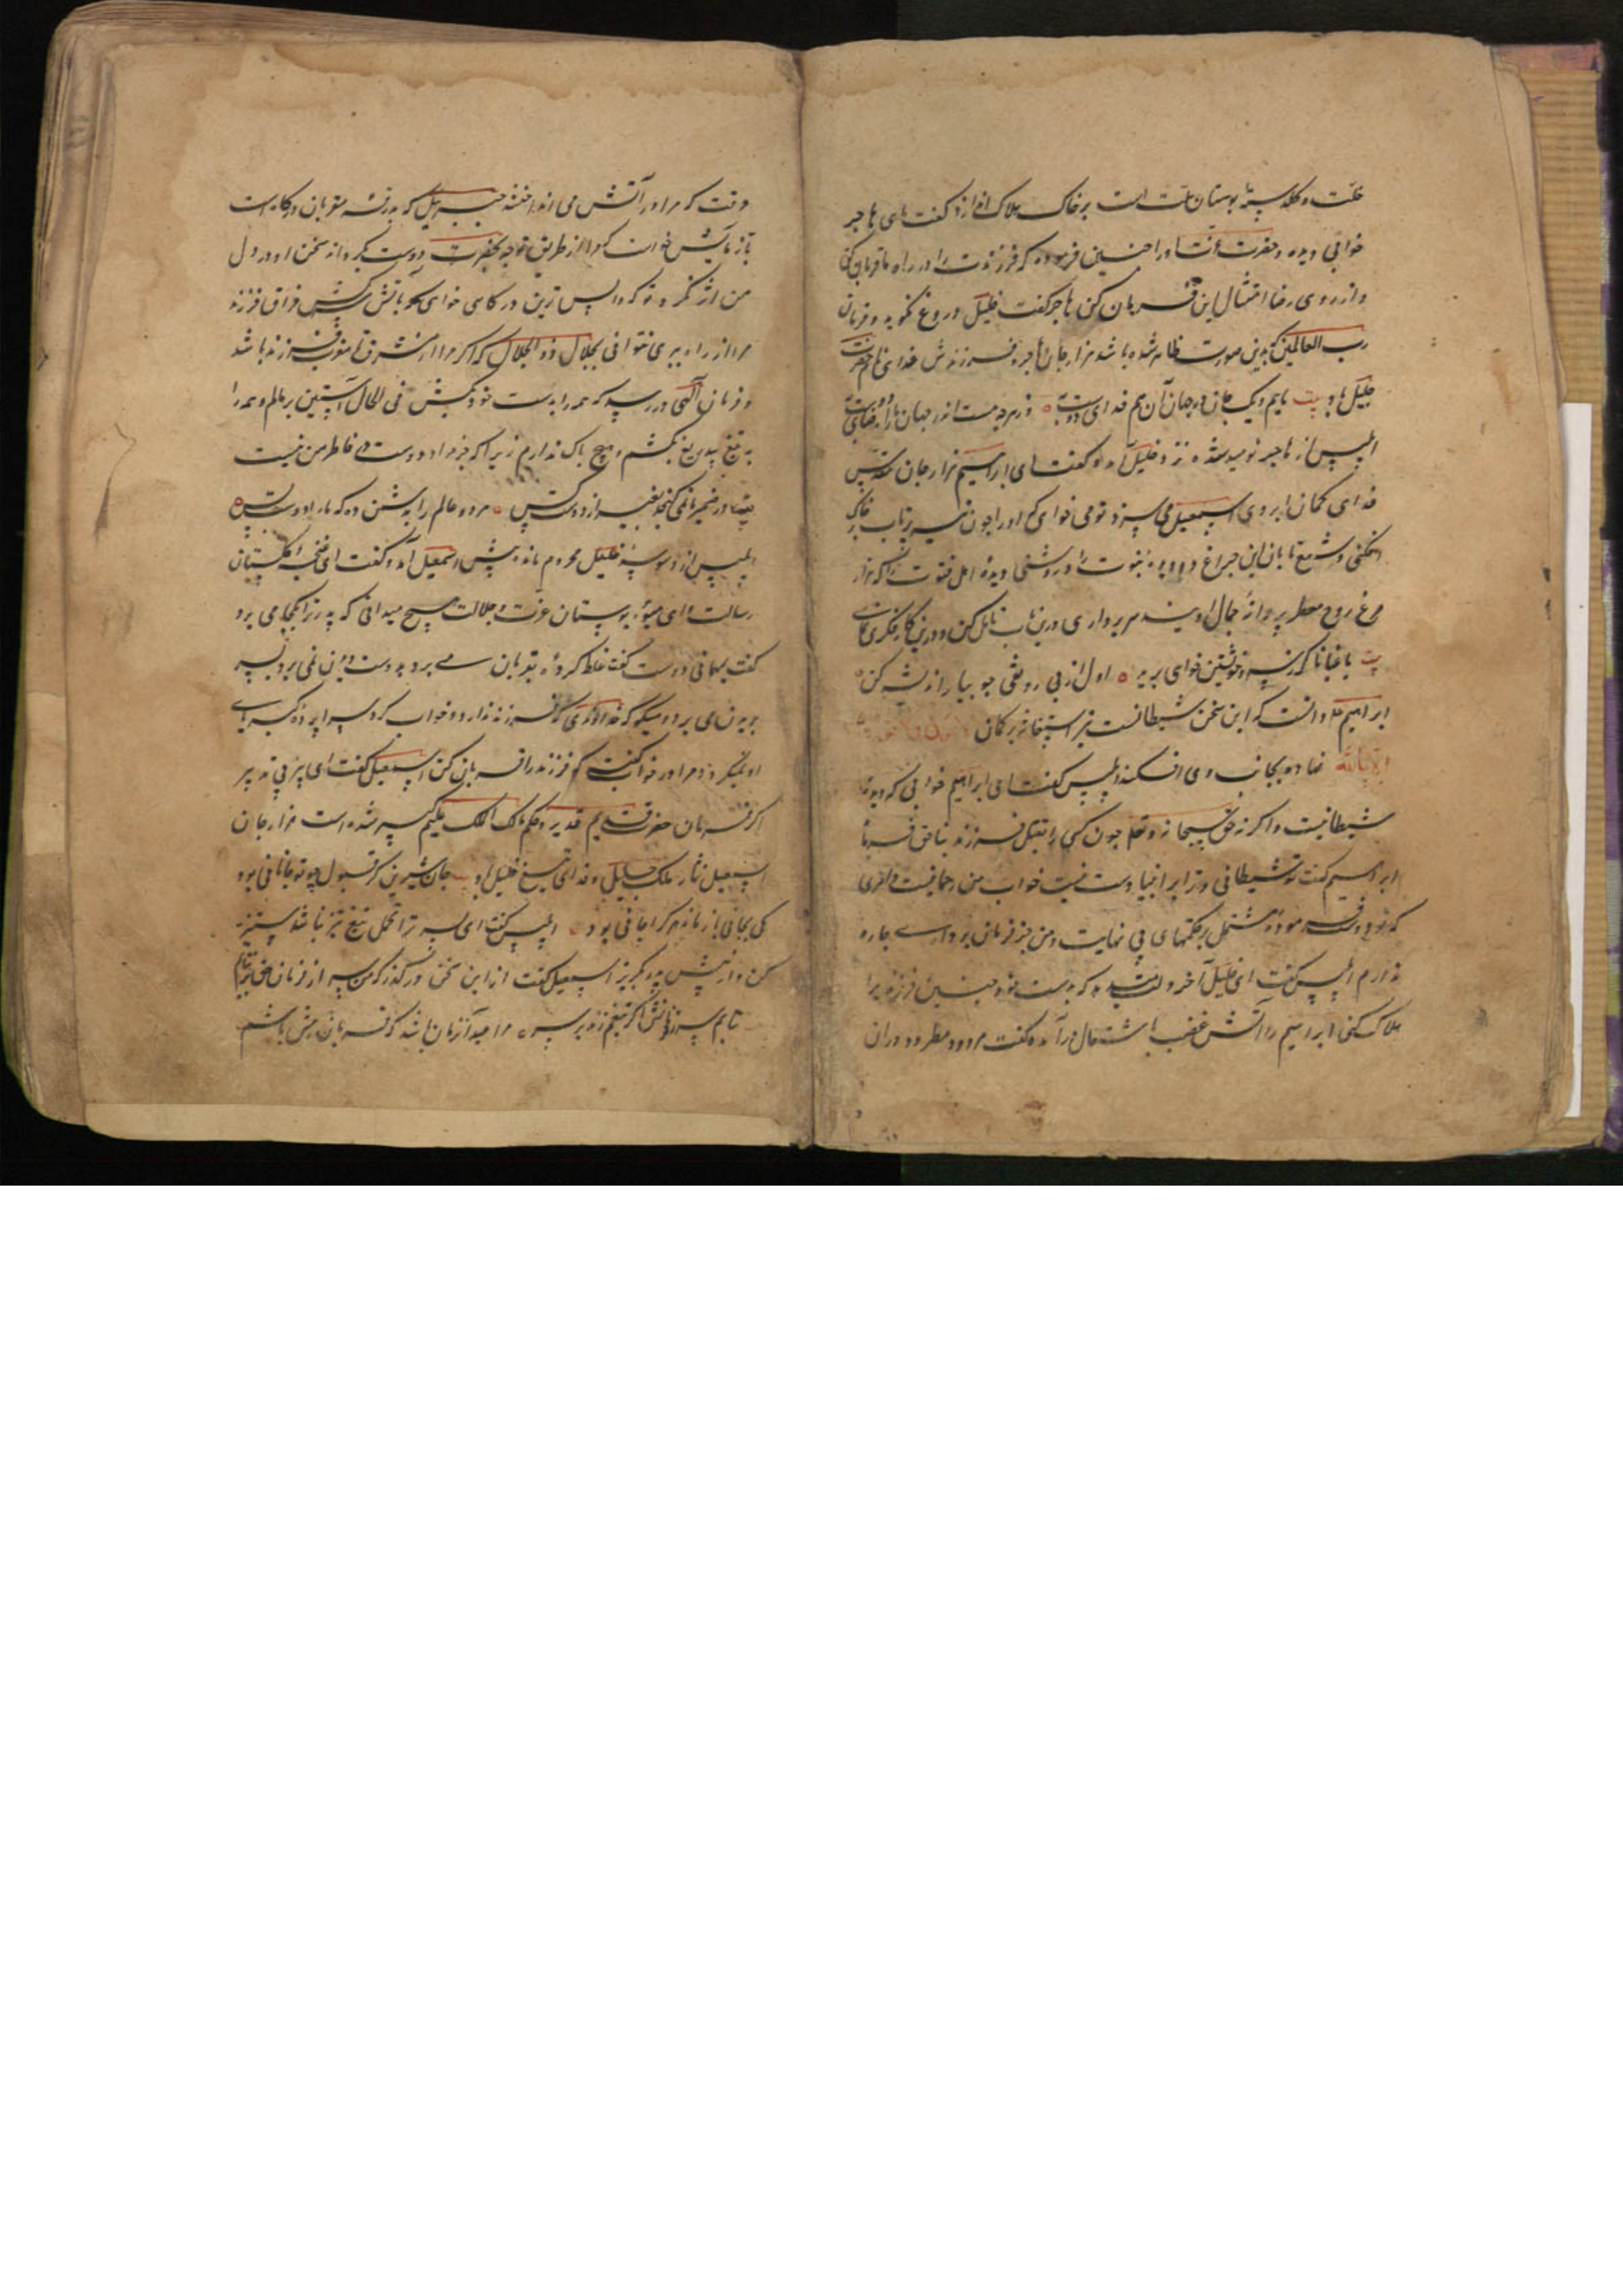 خلت و گلدسته بوستان ملت است بر خاک هلاک اندازد گفت ای هاجر
خوابی دیده و حضرت عزت او را چنین فرموده که فرزندت را در راه ما قربان کن
و از روی رضا امتثال این فرمان کن هاجر گفت خلیل دروغ نگوید و فرمان
رب العالمین که بدین صورت ظاهر شده باشد هزار جان هاجر و فرزندش فدای نام حضرت
جلیل باد بیت مایم و یک جان و جهان آن هم فدای دوست و هرچه هست اندر جهان
ابلیس از هاجر نومید شده نزد خلیل آمد و گفت ای ابراهیم هزار جان مقدس
فدای کمان ابروی اسمعیل می سزد تو می خواهی که او را چون تیر پرتاب بر خاک
افکنی و شمع تابان این چراغ دوده نبوت را و روشنی دیده اهل فتوت را که هزار
مرغ روح معطر پروانه جمال اویند سر برداری درین باب تامل کن و درین کار فکری
بیت باغبانا گر سر و خویشتن خواهی برید اول از بی رونقی جو بیار اندیشه کن
ابراهیم دانست که این سخن شیطانست تیر استعانه بر کمان
الا بالله نهاده بجانب وی افکند ابلیس گفت ای ابراهیم خوابی که دیده
شیطانیست و اگر نه حق سبحانه و تعالی چون کسی را بقتل فرزند بناحق فرماید
ابراهیم گفت تو شیطانی و ترا بر انبیا دست نیست خواب من رحمانیست و امری
که فرموده مشتمل بر حکمتهای بی نهایت و من جز فرمان برداری چاره
ندارم ابلیس گفت ای خلیل آخر دلت میدهد که بدست خود چنین فرزند را
هلاک کنی ابراهیم را آتش غضب باشتعال درآمده گفت مردود مطرود دران
وقت که مرا در آتش می انداختند جبرئیل که بدرقه مقربان درگاه است
بآزمایش خواست که مرا از طریق توجه بحضرت دوست بگرداند سخن او در دل
من اثر نکرد تو که واپس ترین درگاهی خواهی که بآتش کشش فراق فرزند
مرا از راه بری نتوانی بجلال ذو الجلال که اگر مرا از مشرق تا مغرب فرزند باشد
و فرمان آلهی در رسد که همه را بدست خود بکش فی الحال آستین برمالم و همه را
به تیغ بیدریغ بکشم و هیچ باک ندارم زیرا که جز مراد دوست در خاطر من نیست
بیت در ضمیر ما نمی گنجد بغیر از دوست کس هر دو عالم را بدشمن ده که ما را دوست بس
ابلیس از وسوسه خلیل محروم مانده پیش اسمعیل آمد و گفت ای غنچه گلستان
رسالت و ای میوه بوستان عزت و جلالت هیچ میدانی که پدر ترا کجا می برد
گفت بمهمانی دوست گفت غلط کرده بقربان می برد بدوست دیدن نمی برد بسر
بریدن می برد و میگوید که خداوندی که فرزند ندارد و خواب گرد سراپرده کبریای
او نمیگردد مرا در خواب گفت که فرزند را قربان کن اسمعیل گفت ای پیر بی تدبیر
اگر فرمان حضرت قدیم قدیر و حکم مالک الملک علیم شده است هزار جان
اسمعیل نثار ملک جلیل و فدای تیغ خلیل او بیت جان شیرین گر قبول چو تو جانانی بود
کی بجانی باز ماند هر کرا جانی بود ابلیس گفت ای پسر ترا تحمل تیغ تیز نباشد ستیزه
مکن و از پیش پدر بگریز اسمعیل گفت ازین سخن درگذر که من سر از فرمان حق نتابم
نتابم سر ز فرمانش اگر تیغم زند بر سر مرا عید آن زمان باشد که قربان رهش باشم